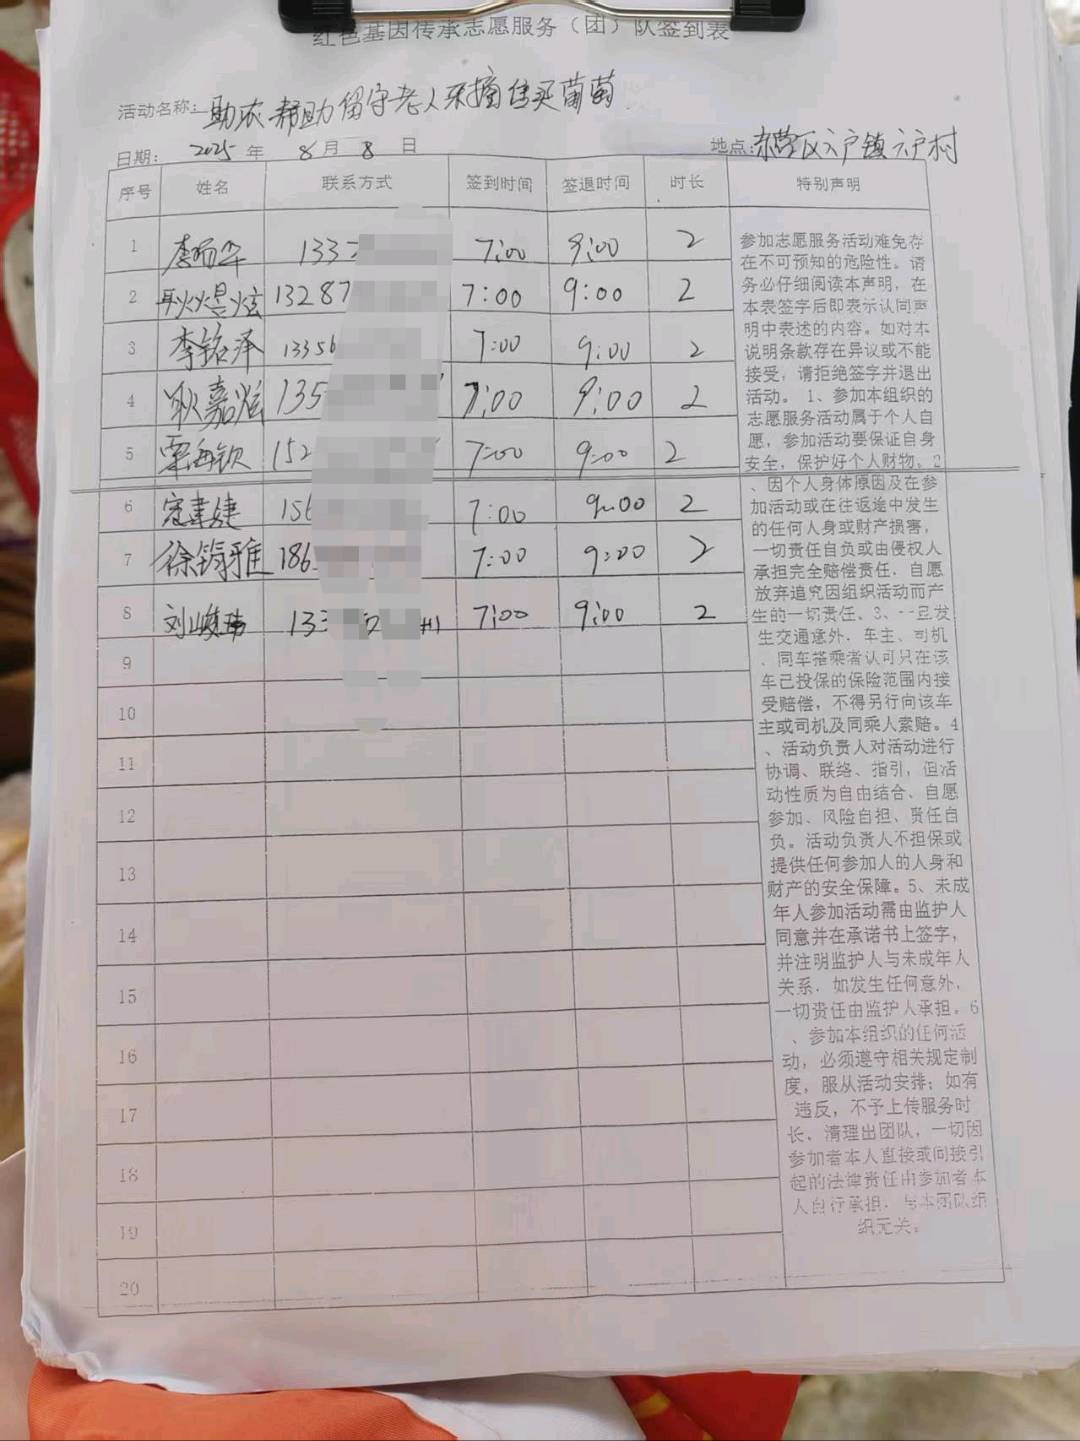 红色基因传承志愿服务（团）队签到表
活动名称: 助农 帮助留守老人采摘售买葡萄
日期: 2025 年 8 月 8 日 地点: 东营区六户镇六户村
序号 姓名 联系方式 签到时间 签退时间 时长 特别声明
1 133 7:00 9:00 2
2 耿煜炫 13287 7:00 9:00 2
3 李铭泽 13356 7:00 9:00 2
4 耿嘉炫 135 7:00 9:00 2
5 栗海钦 152 7:00 9:00 2
6 寇建婕 156 7:00 9:00 2
7 徐筠雅 186 7:00 9:00 2
8 刘峻玮 133 7:00 9:00 2
9
10
11
12
13
14
15
16
17
18
19
20
参加志愿服务活动难免存
在不可预知的危险性。请
务必仔细阅读本声明，在
本表签字后即表示认同声
明中表述的内容。如对本
说明条款存在异议或不能
接受，请拒绝签字并退出
活动。1、参加本组织的
志愿服务活动属于个人自
愿，参加活动要保证自身
安全，保护好个人财物。2
、因个人身体原因及在参
加活动或在往返途中发生
的任何人身或财产损害，
一切责任自负或由侵权人
承担完全赔偿责任．自愿
放弃追究因组织活动而产
生的一切责任。3、一旦发
生交通意外．车主、司机
、同车搭乘者认可只在该
车已投保的保险范围内接
受赔偿，不得另行向该车
主或司机及同乘人索赔。4
、活动负责人对活动进行
协调、联络、指引，但活
动性质为自由结合、自愿
参加、风险自担、责任自
负。活动负责人不担保或
提供任何参加人的人身和
财产的安全保障。5、未成
年人参加活动需由监护人
同意并在承诺书上签字，
并注明监护人与未成年人
关系．如发生任何意外，
一切责任由监护人承担。6
、参加本组织的任何活
动，必须遵守相关规定制
度，服从活动安排；如有
违反，不予上传服务时
长、清理出团队，一切因
参加者本人直接或间接引
起的法律责任由参加者本
人自行承担．与本团队组
织无关。